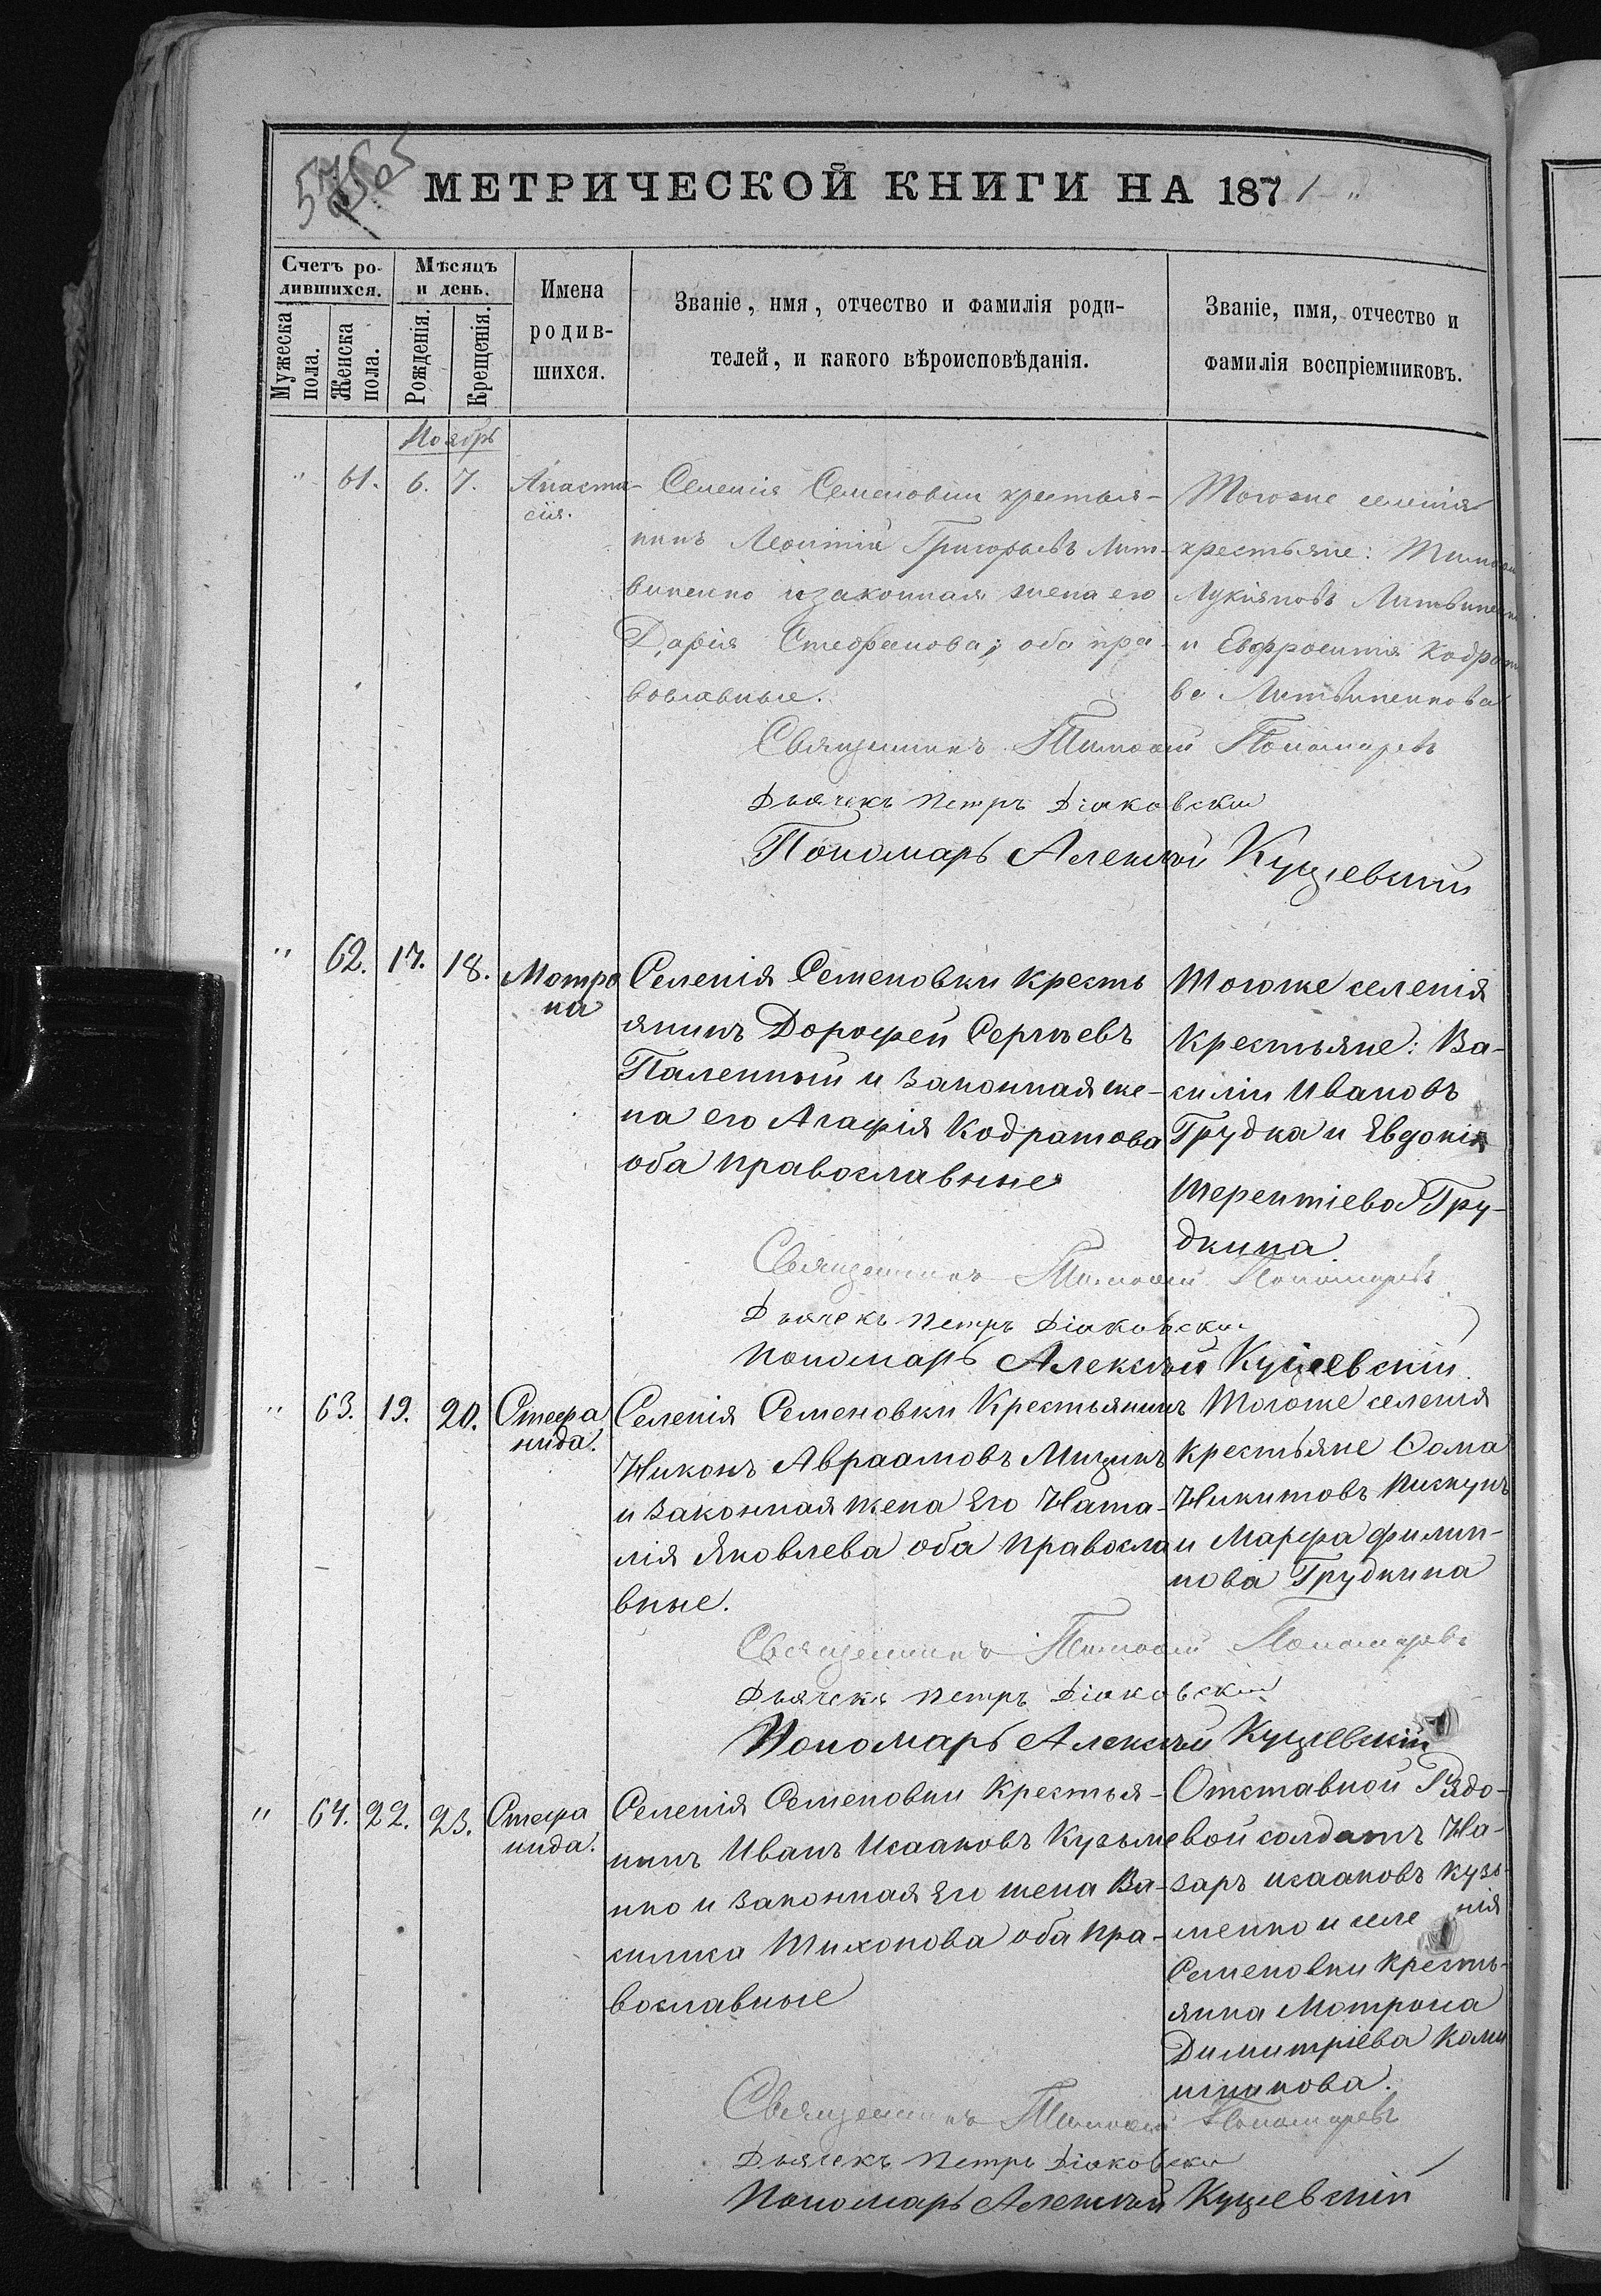 МЕТРИЧЕСКОЙ КНИГИ НА 1871
Счетъ ро-
дившихся.
Мѣсяцъ
и день.
Мужеска
пола.
Женска
пола.
Рожденія.
Крещенія.
Имена
родив-
шихся.
Званіе, имя, отчество и фамилія роди-
телей, и какого вѣроисповѣданія.
Званіе, имя, отчество и
фамилія воспріемниковъ.
Ноябрь
" 61. 6. 7.
Анаста-
сія.
Селенія Семеновки крестья-
нинъ Леонтій Григорьевъ Лит-
виненко и законная жена его
Дарія Стефанова; оба пра-
вославные.
Тогоже селенія
крестьяне:
Лукіяновъ Литвиненко
и Евфросинія Кодрато
ва Литвиненкова
Священникъ Тимофей Пономаревъ
Дьячекъ Петръ Діаковскій
Пономарь Алексѣй Кущевскій
" 62. 17. 18.
Мотро
на
Селенія Семеновки Кресть
янинъ Дорофей Сергѣевъ
Паленный и законная же-
на его Агафія Кодратова
оба православные
Тогоже селенія
Крестьяне: Ва-
силій Ивановъ
Грудка и Евдокія
Терентіева Гру-
дкина
Священникъ Тимофей Пономаревъ
Дьячекъ Петръ Діаковскій
Пономарь Алексѣй Кущевскій
" 63. 19. 20.
Стефа
нида.
Селенія Семеновки Крестьянинъ
Никонъ Авраамовъ
и законная жена Его Ната-
лія Яковлева оба правосла
вные.
Тогоже селенія
крестьяне Ѳома
Никитовъ Пискунъ
и Марфа Филип-
пова Грудкина
Священникъ Тимофей Пономаревъ
Дьячекъ Петръ Діаковскій
Пономарь Алексѣй Кущевскій
" 64. 22. 23.
Стефа
нида.
Селенія Семеновки Крестья-
нинъ Иванъ Исааковъ Кузьме
нко и законная Его жена Ва-
силиса Тихонова оба пра-
вославные
Отставной Рядо-
вой солдатъ На-
заръ Исааковъ Кузь-
менко и селе нія
Семеновки Кресть-
янка Мотрона
Димитріева
Священникъ Тимофей Пономаревъ
Дьячекъ Петръ Діаковскій
Пономарь Алексѣй Кущевскій